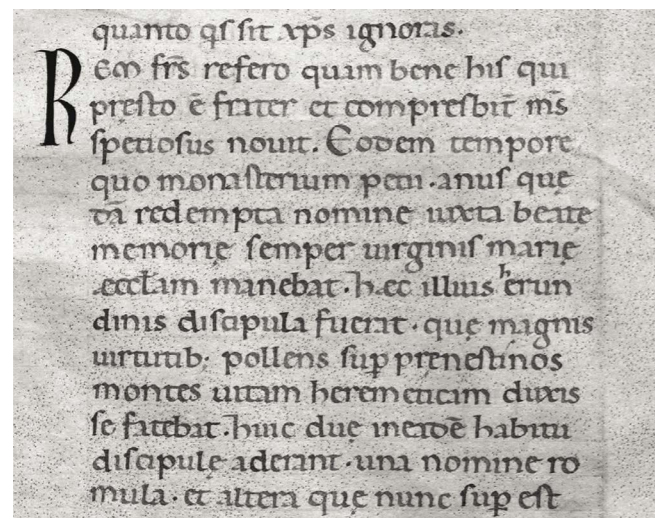 quanto qꝭ sit xp̄s ignoras.
Rem fr̄s refero quam bene hiſ qui
pręsto ē frater et compreſbit̄ m̄s
ſpetioſus nouit. Eodem tempore
quo monaſterium petii. anuſ quę
dā redempta nomine iuxta beatę
memorię ſemper uirginiſ marię
ęccłam manebat. hęc illius herun
dinis diſcipula fuerat. quę magnis
uirtutib; pollens ſuꝑ pręneſtinos
montes uitam heremeticam duxis
ſe fatebat. huic duę in eodē habitu
diſcipulę aderant. una nomine ro
mula. et altera quę nunc ſuꝑ eſt